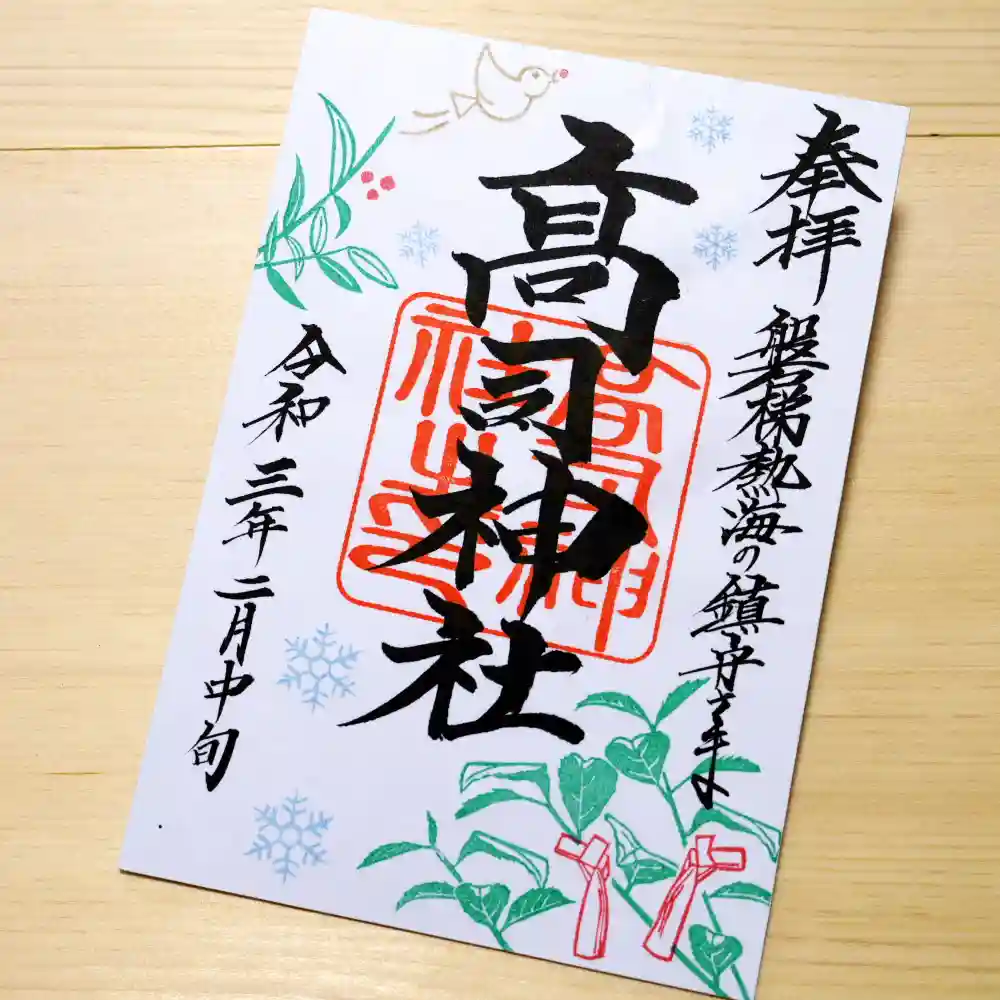 奉拝
磐梯熱海の鎮守さま
高司神社
高司神
社之印
令和三年二月中旬